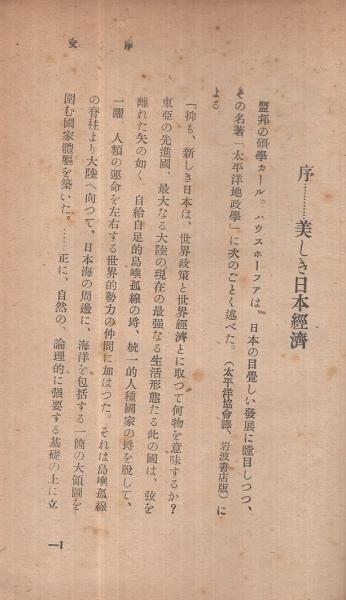 序文
序………美しき日本經濟
盟邦の碩學カール。ハウスホーフアは、日本の目覺しい發展に瞠目しつつ、
その名著「太平洋地政學」に次のごとく述べた。（太平洋協會譯、岩波書店版）に
よる
「抑も、新しき日本は、世界政策と世界經濟とに取つて何物を意味するか？
東亞の先進國、最大なる大陸の現在の最强なる生活形態たる此の國は、弦を
離れた矢の如く、自給自足的島嶼孤線の埓、統一的人種國家の埓を脫して、
一躍、人類の運命を左右する世界的勢力の仲間に加はつた。それは島嶼孤線
の脊柱より大陸へ向つて、日本海の周邊に、海洋を包括する一箇の大領圖を
圍む國家體軀を築いた。……正に、自然の、論理的に强要する基礎の上に立
—1